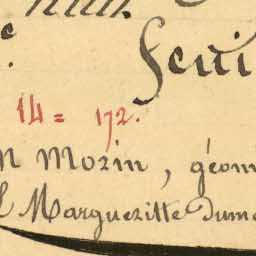 feui
14 = 172.
n Morin, géom
Margueritte Dumo